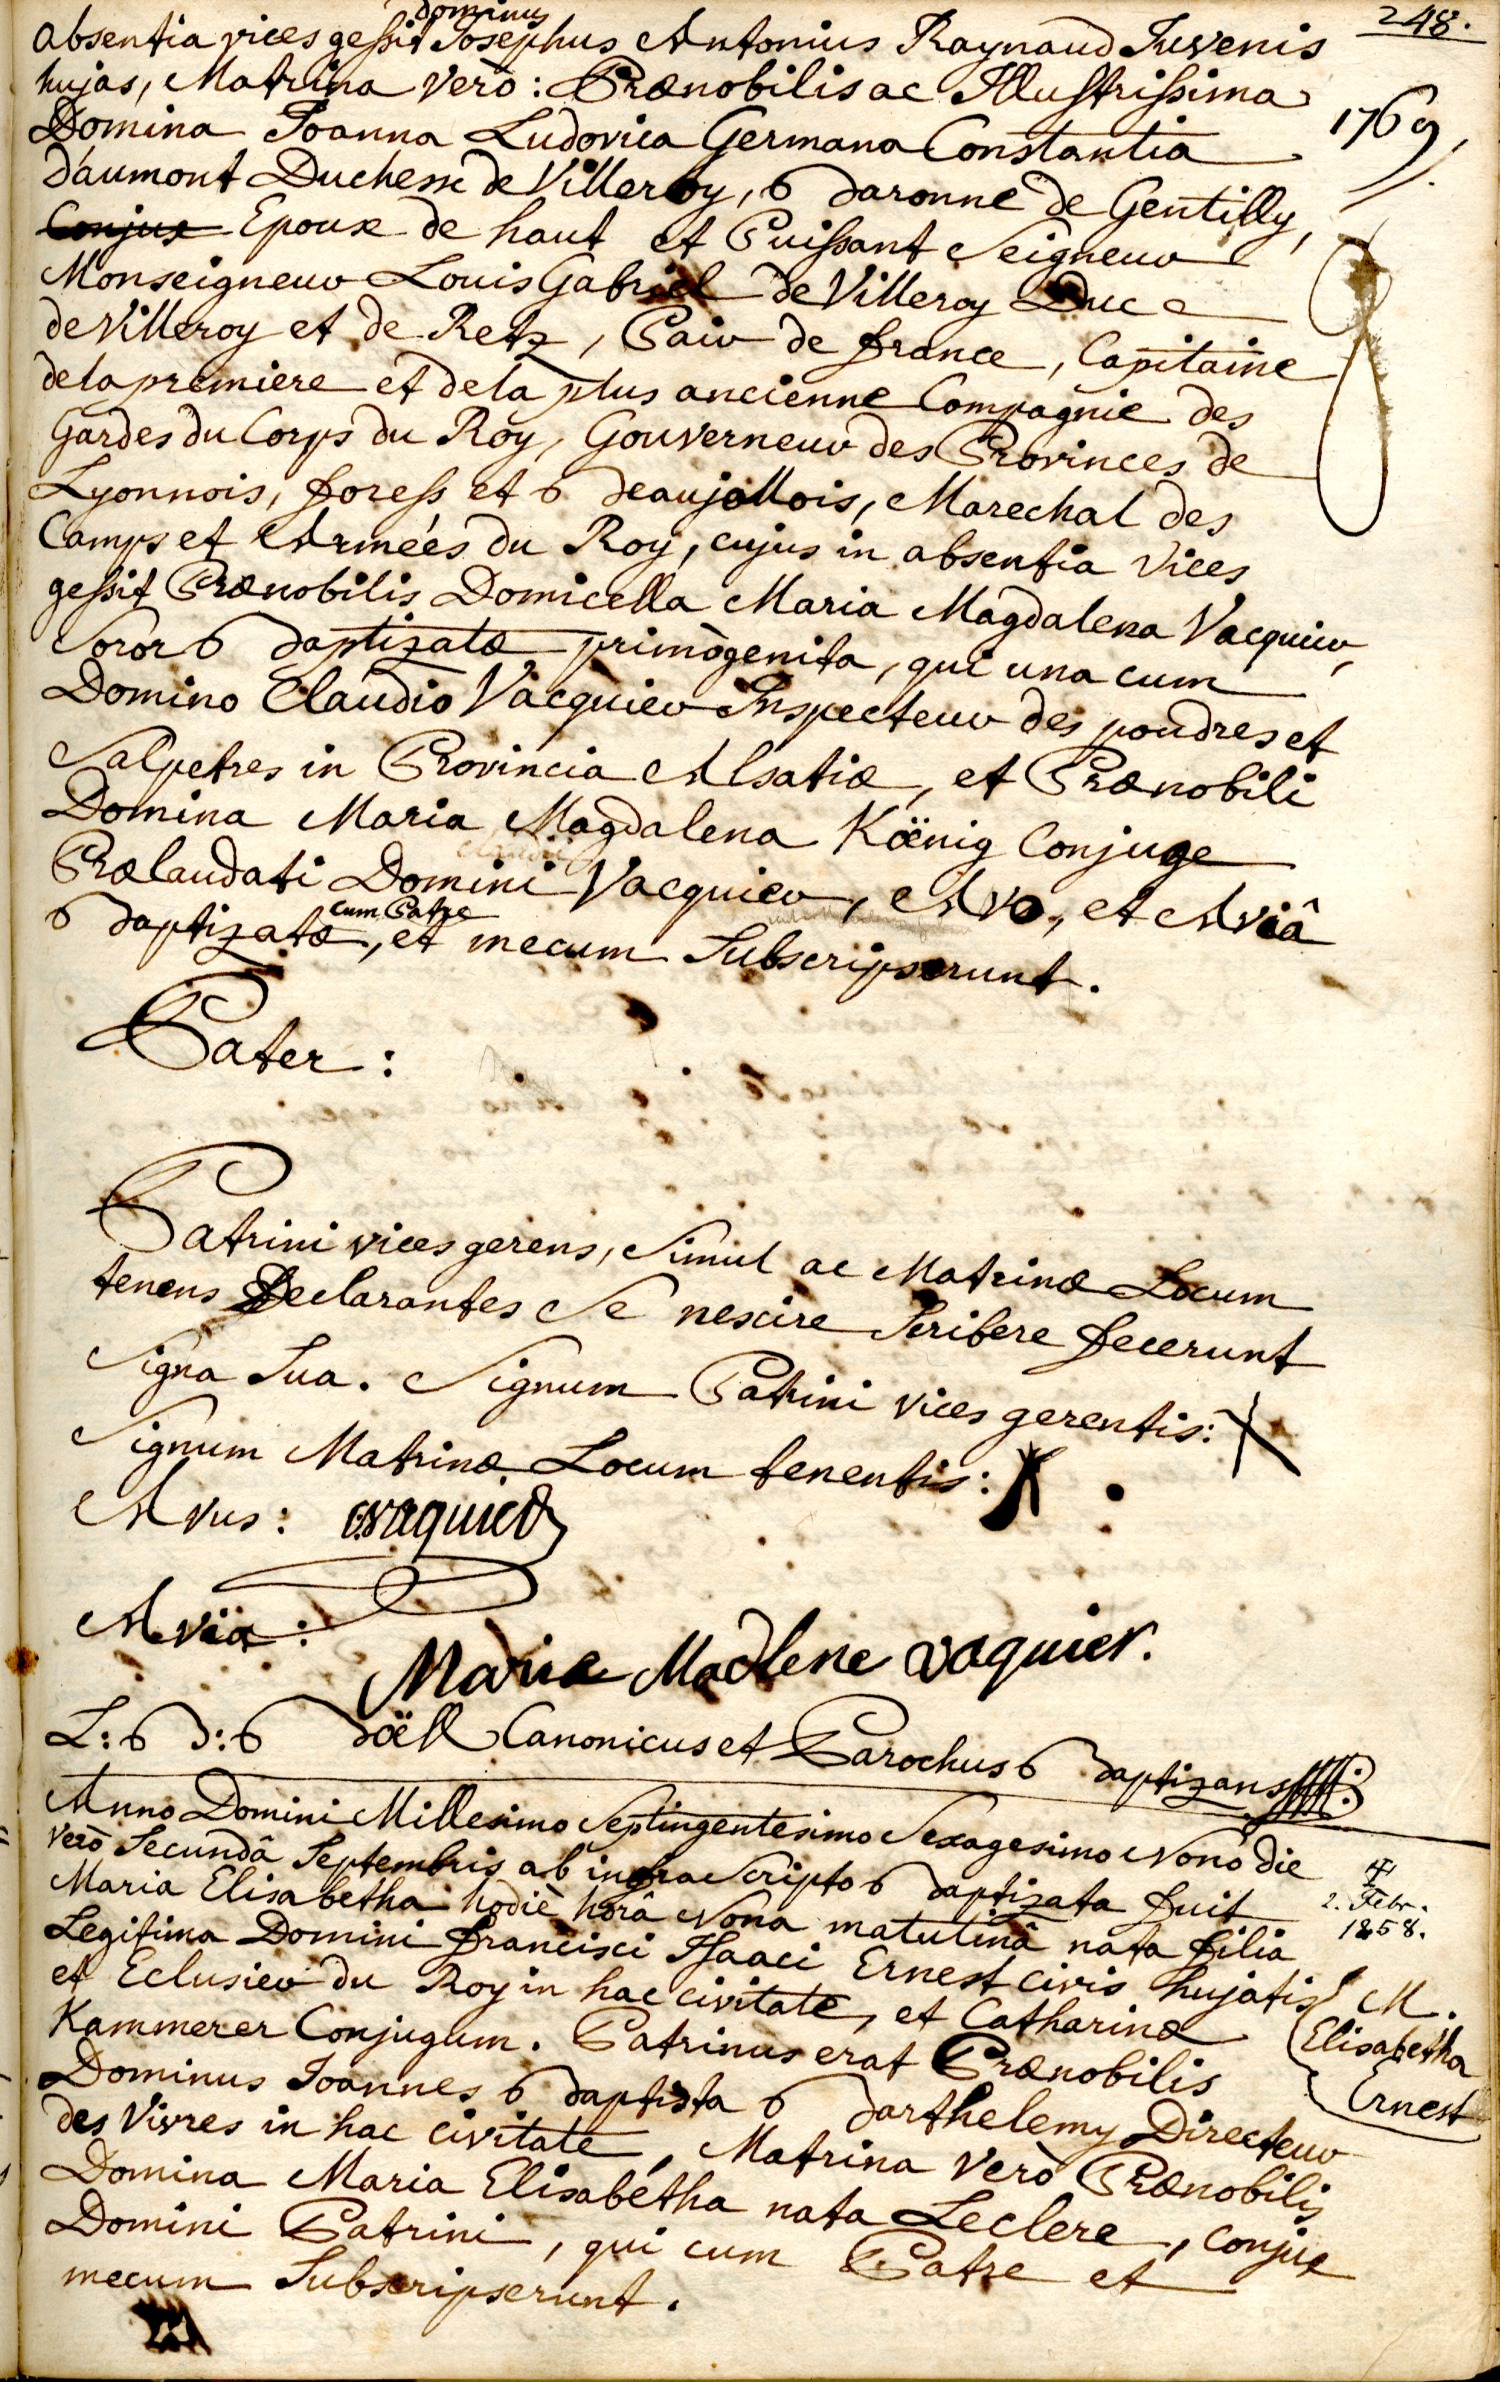 248.
1769.
dominus
absentia vices gessit Josephus Antonius Raynaud Juvenis
hujas, Matrina verò: Prænobilis ac Illustrissima
Domina Joanna Ludovica Germana Constantia
d'aumont Duchesse de Villeroy, Baronne de Gentilly,
Conjux Epoux de haut et Puissant Seigneur
Monseigneur Louis Gabriel de Villeroy Duc
de Villeroy et de Retz, Pair de france, Capitaine
de la premiere et de la plus ancienne Compagnie des
Gardes du Corps du Roy, Gouverneur des Provinces de
Lyonnois, foress et Beaujollois, Marechal des
Camps et Armeés du Roy, cujus in absentia vices
gessit Prænobilis Domicella Maria Magdalena Vacquier,
Soror Baptizatæ primògenita, qui una cum
Domino Claudio Vacquier Inspecteur des poudres et
Salpetres in Provincia Alsatiæ, et Prænobili
Domina Maria Magdalena Köenig Conjuge
Claudii
Prælaudati Domini Vacquier, Avo, et Aviâ
cum Patre
Baptizatæ, et mecum Subscripserunt.
Pater:
Patrini vices gerens, Simul ac Matrinæ Locum
tenens Declarantes Se nescire Scribere fecerunt
Signa Sua. Signum Patrini vices gerentis: X
Signum Matrinæ Locum tenentis: X
Avus: vaquier
Avia:
Marie Madlene vaquier.
L: B: Böell Canonicus et Parochus Baptizans
Anno Domini Millesimo Septingentesimo Sexagesimo Nono die
verò Secundâ Septembris ab infrascripto Baptizata fuit
Maria Elisabetha hodiè horâ Nona matutinâ nata filia
Legitima Domini francisci Isaaci Ernest civis hujatis
et Eclusier du Roy in hac civitate, et Catharinæ
Kammerer Conjugum. Patrinus erat Prænobilis
Dominus Joannes Baptista Barthelemy Directeur
des Vivres in hac civitate, Matrina verò Prænobilis
Domina Maria Elisabétha nata Leclere, conjux
Domini Patrini, qui cum Patre et
mecum Subscripserunt.
2. Febr.
1858.
M.
Elisabetha
Ernest